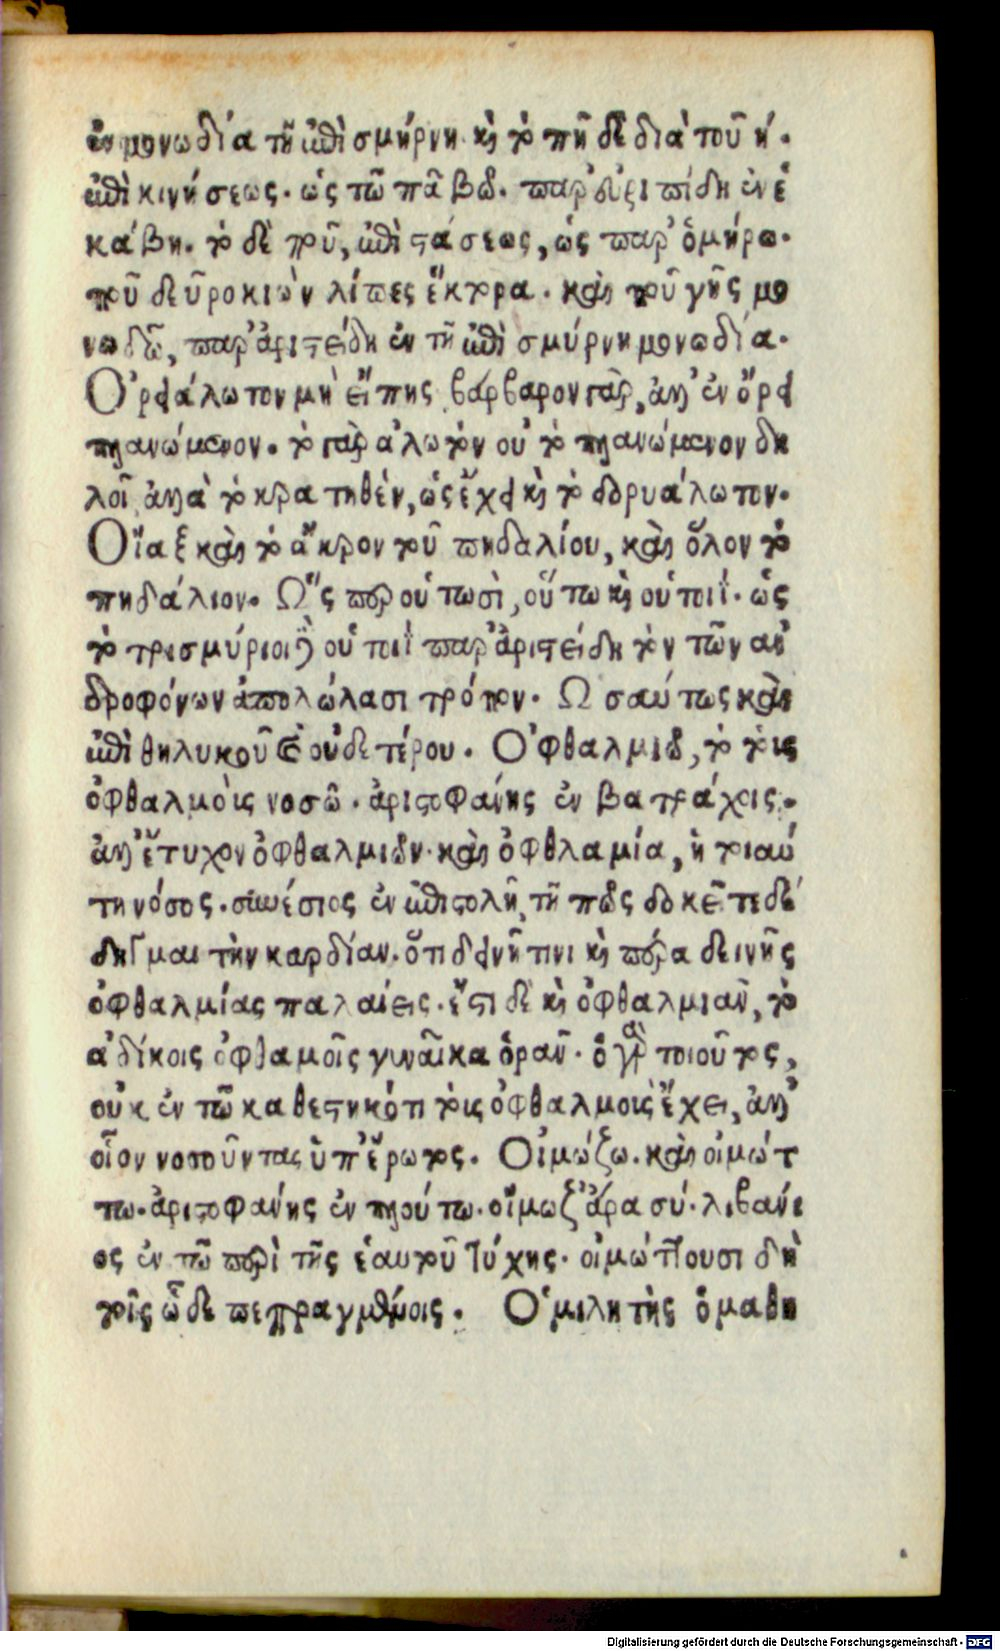 ἐν μονωδία τῆ ἐπὶ σμήρνη. καὶ τὸ πῆ δὲ διὰ τοῦ ή.
ἐπὶ κινήσεως. ὡς τῶ πᾶ βῶ. παρ' εὐριπίδη ἐν ἑ
κάβη. τὸ δὲ ποῦ, ἐπὶ στάσεως, ὡς παρ' ὁμήρω.
ποῦ δεῦρο κιὼν λίπες ἕκτορα. καὶ ποῦ γῆς μο
νωδῶ, παρ' ἀριστείδη ἐν τῆ ἐπὶ σμύρνη μονωδία.
Ὀρειάλωτον μὴ εἴπης βάρβαρον γάρ, ἀλλ' ἐν ὄρει
πλανώμενον. τὸ γὰρ ἁλωτὸν οὐ τὸ πλανώμενον δη
λοῖ ἀλλὰ τὸ κρατηθέν, ὡς ἔχει καὶ τὸ δορυάλωτον.
Οἴαξ καὶ τὸ ἄκρον τοῦ πηδαλίου, καὶ ὅλον τὸ
πηδάλιον. Ὥσπερ οὑτωσὶ, οὕτω καὶ οὑτοιΐ. ὡς
τὸ τρισμύριοι οὑτοιΐ παρ' ἀριστείδη τὸν τῶν ἀν
δροφόνων ἀπολώλασι τρόπον. Ὡσαύτως καὶ
ἐπὶ θηλυκοῦ καὶ οὐδετέρου. Ὀφθαλμιῶ, τὸ τοὺς
ὀφθαλμοὺς νοσῶ. ἀριστοφάνης ἐν βατράχοις.
ἀλλ' ἔτυχον ὀφθαλμιῶν. καὶ ὀφθλαμία, ἡ τοιαύ
τη νόσος. συνέσιος ἐν ἐπιστολῆ, τῆ πῶς δοκεῖτε δέ
δηγμαι τὴν καρδίαν. ὅτι δεινῆ τινι καὶ πέρα δεινῆς
ὀφθαλμίας παλαίεις. ἔστι δὲ καὶ ὀφθαλμιᾶν, τὸ
ἀδίκοις ὀφθαμοῖς γυναῖκα ὁρᾶν. ὁ γὰρ τοιοῦτος,
οὐκ ἐν τῶ καθεστηκότι τοὺς ὀφθαλμοὺς ἔχει, ἀλλ'
οἷον νοσοῦντας ὑπ' ἔρωτος. Οἰμώζω. καὶ οἰμώτ
τω. ἀριστοφάνης ἐν πλούτω. οἴμωζ' ἄρα σύ. λιβάνι
ος ἐν τῶ περὶ τῆς ἑαυτοῦ τύχης. οἰμώττουσι δὴ
τοῖς ὧδε πεπραγμένοις. Ὁμιλητὴς ὁμαθη
Digitalisierung gefördert durch die Deutsche Forschungsgemeinschaft - DFG